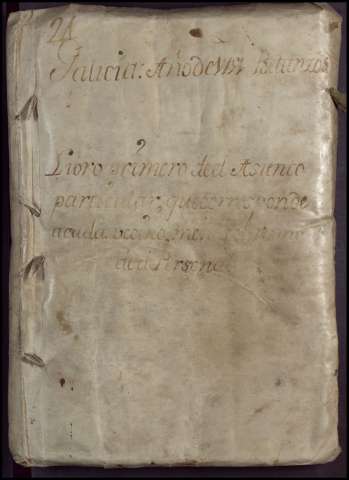 24
Galicia: Año de 1757 Betanzos
Libro primero de el Asiento
particular, que corresponde
acada vecino,
de el Personal